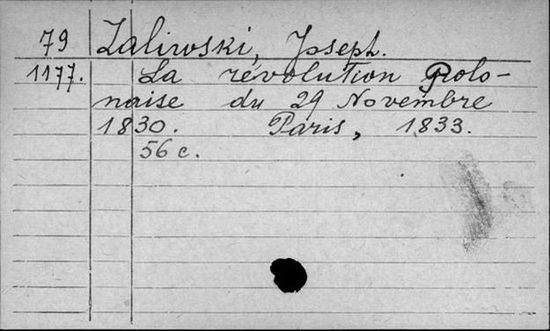 79 Zaliwski, Joseph.
1177. La révolution Polo-
naise du 29 Novembre
1830. Paris, 1833.
56 c.